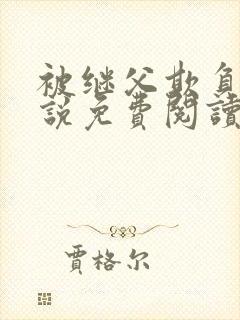 被继父欺负
說免費閱讀
贾格尔